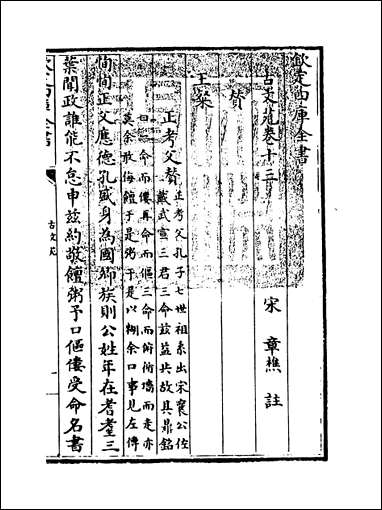 欽定四庫全書
古文苑卷十三
宋 章樵 註
贊
王粲
正考父贊
正考父孔子七世祖系出宋襄公佐
戴武宣三君三命兹益共故其鼎銘
曰一命而僂再命而傴三命而俯循墻而走亦
莫余敢侮饘于是粥于是以糊余口事見左傳
恂恂正父應德孔盛身為國卿族則公姓年在耆耋三
葉聞政誰能不怠申兹約敬饘粥予口傴僂受命名書
古文苑